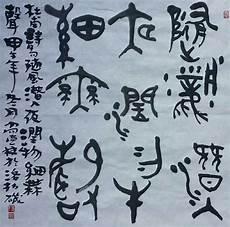 隨風潛入
夜潤物
細無聲
杜甫詩句隨風潛入夜潤物細無
聲甲午年冬月於洛杉磯